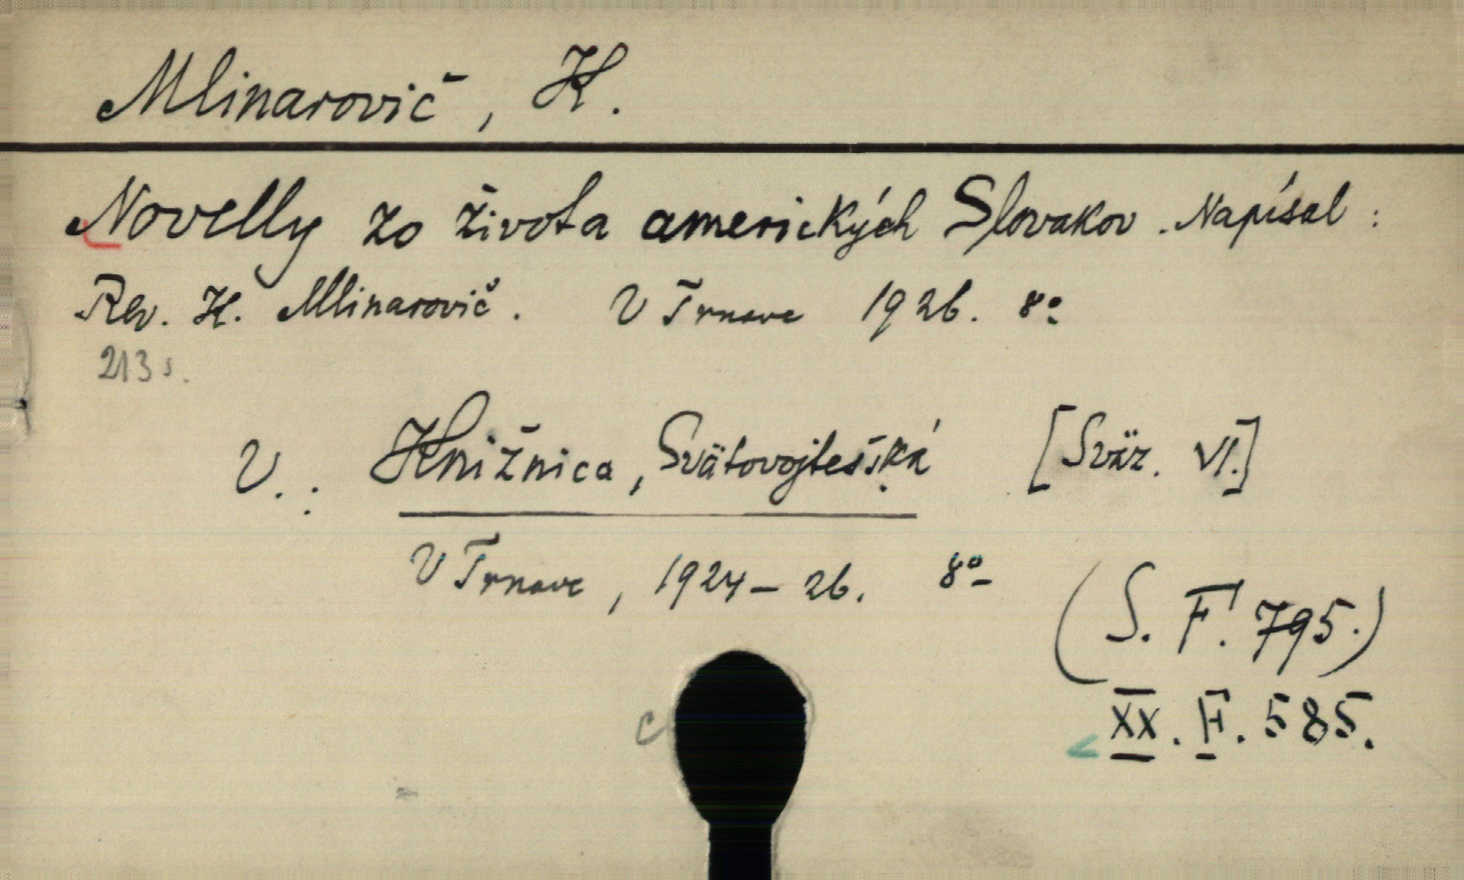 Mlinarovič, K.
Novelly zo života amerických Slovakov. Napísal:
Rev. K. Mlinarovič. V Trnave 1926. 8º
213 s.
V.: Knižnica, Svätovojtešská [Sväz. VI.]
V Trnave, 1924-26. 8º
(S. F. 795.)
XX. F. 585.
c